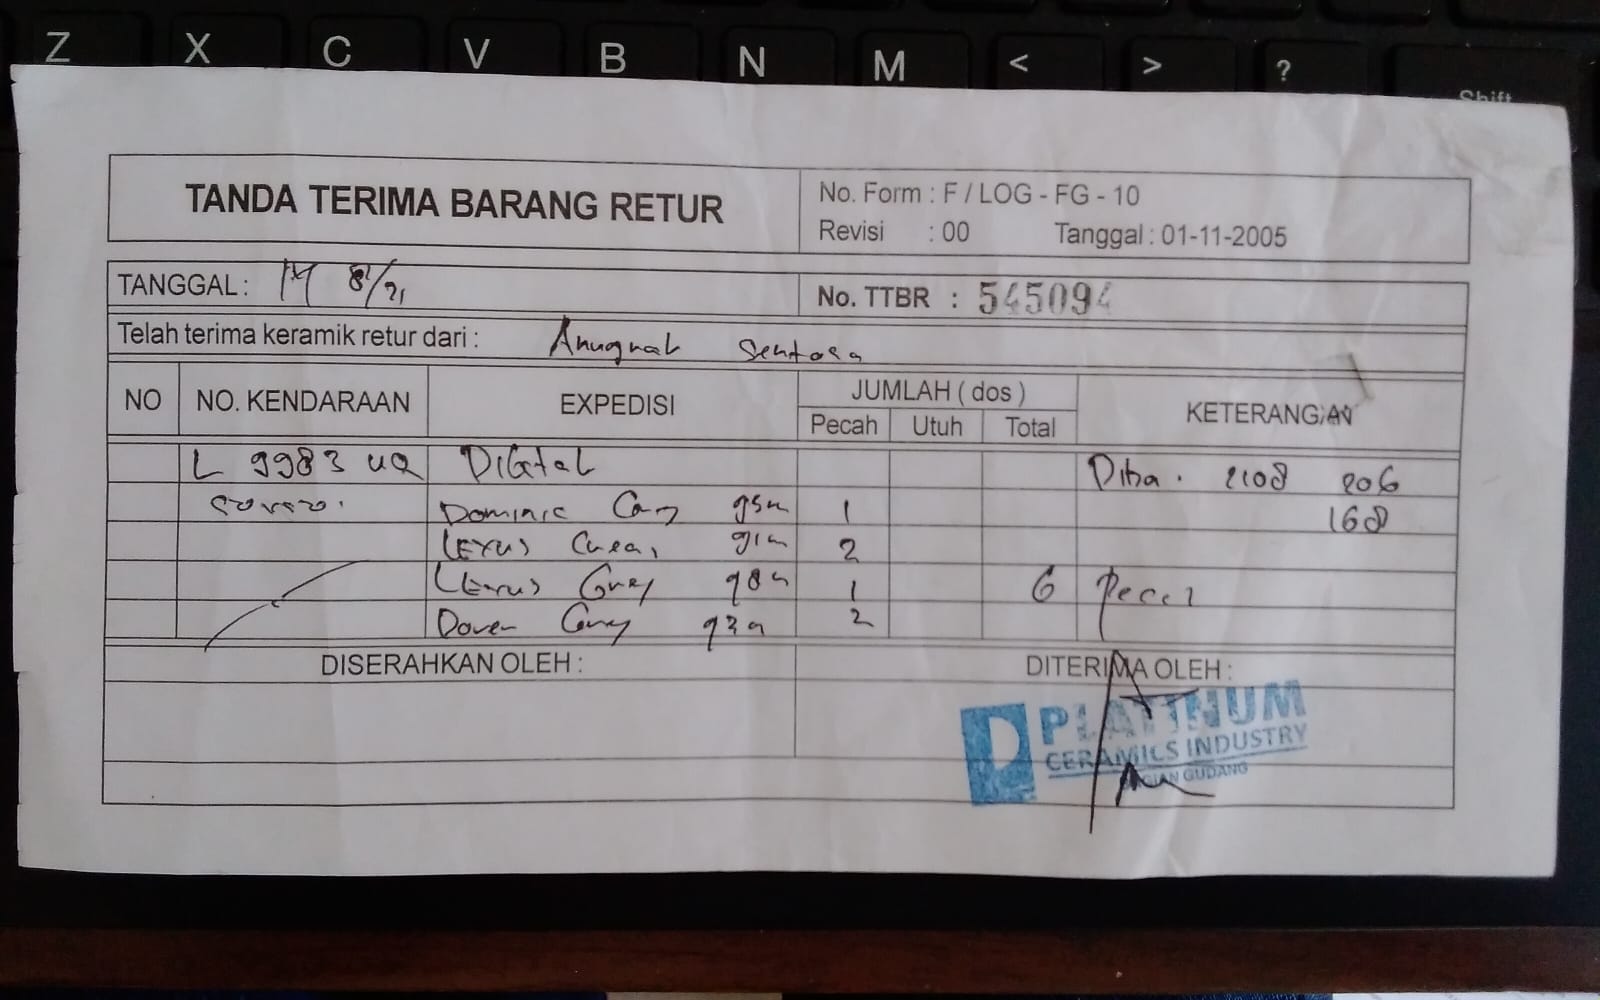 Z X C V B N M < > ?
Shift
TANDA TERIMA BARANG RETUR
No. Form : F / LOG - FG - 10
Revisi : 00 Tanggal : 01-11-2005
TANGGAL : 14 8/21
No. TTBR : 545094
Telah terima keramik retur dari : Anugrah Sentosa
NO NO. KENDARAAN EXPEDISI JUMLAH ( dos ) KETERANGAN
Pecah Utuh Total
L 9983 UQ Digital 2108 206
Dominic 1 168
Lexus 2
Lexus Grey 1 6
Grey 2
DISERAHKAN OLEH : DITERIMA OLEH :
PLATINUM
CERAMICS INDUSTRY
GUDANG